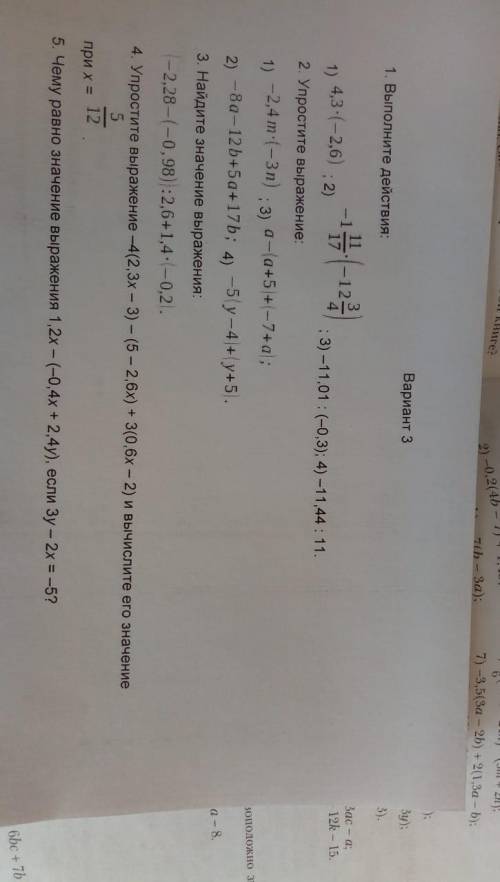 Вариант 3
1. Выполните действия:
1) 4,3·(−2,6) ; 2) −1 11/17 · (−12 3/4) ; 3) −11,01 : (−0,3); 4) −11,44 : 11.
2. Упростите выражение:
1) −2,4m·(−3n) ; 3) a−(a+5)+(−7+a);
2) −8a−12b+5a+17b; 4) −5(y−4)+(y+5).
3. Найдите значение выражения:
(−2,28−(−0,98)):2,6+1,4·(−0,2).
4. Упростите выражение −4(2,3x − 3) − (5 − 2,6x) + 3(0,6x − 2) и вычислите его значение
при x = 5/12 .
5. Чему равно значение выражения 1,2x − (−0,4x + 2,4y), если 3y − 2x = −5?
книге?
2) −0,2(4b −
7(b − 3a);
7) −3,5(3a − 2b) + 2(1,3a − b);
);
3y);
3).
3ac − a;
12k − 15.
a − 8.
6bc + 7b